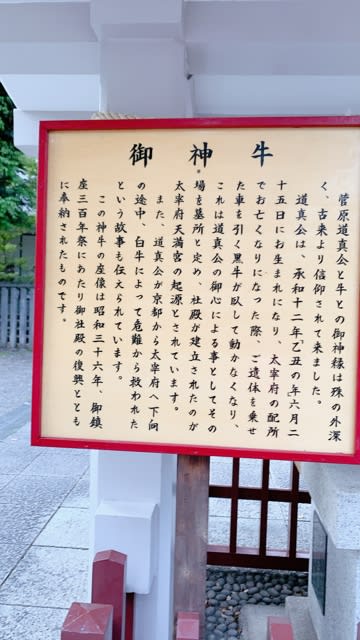 御神牛
菅原道真公と牛との御神縁は殊の外深
く、古来より信仰されて来ました。
道真公は、承和十二年乙丑の年六月二
十五日にお生まれになり、太宰府の配所
でお亡くなりになった際、ご遺体を乗せ
た車を引く黒牛が臥して動かなくなり、
これは道真公の御心による事としてその
場を墓所と定め、社殿が建立されたのが
太宰府天満宮の起源とされています。
また、道真公が京都から太宰府へ下向
の途中、白牛によって危難から救われた
という故事も伝えられています。
この神牛の座像は昭和三十六年、御鎮
座三百年祭にあたり御社殿の復興ととも
に奉納されたものです。